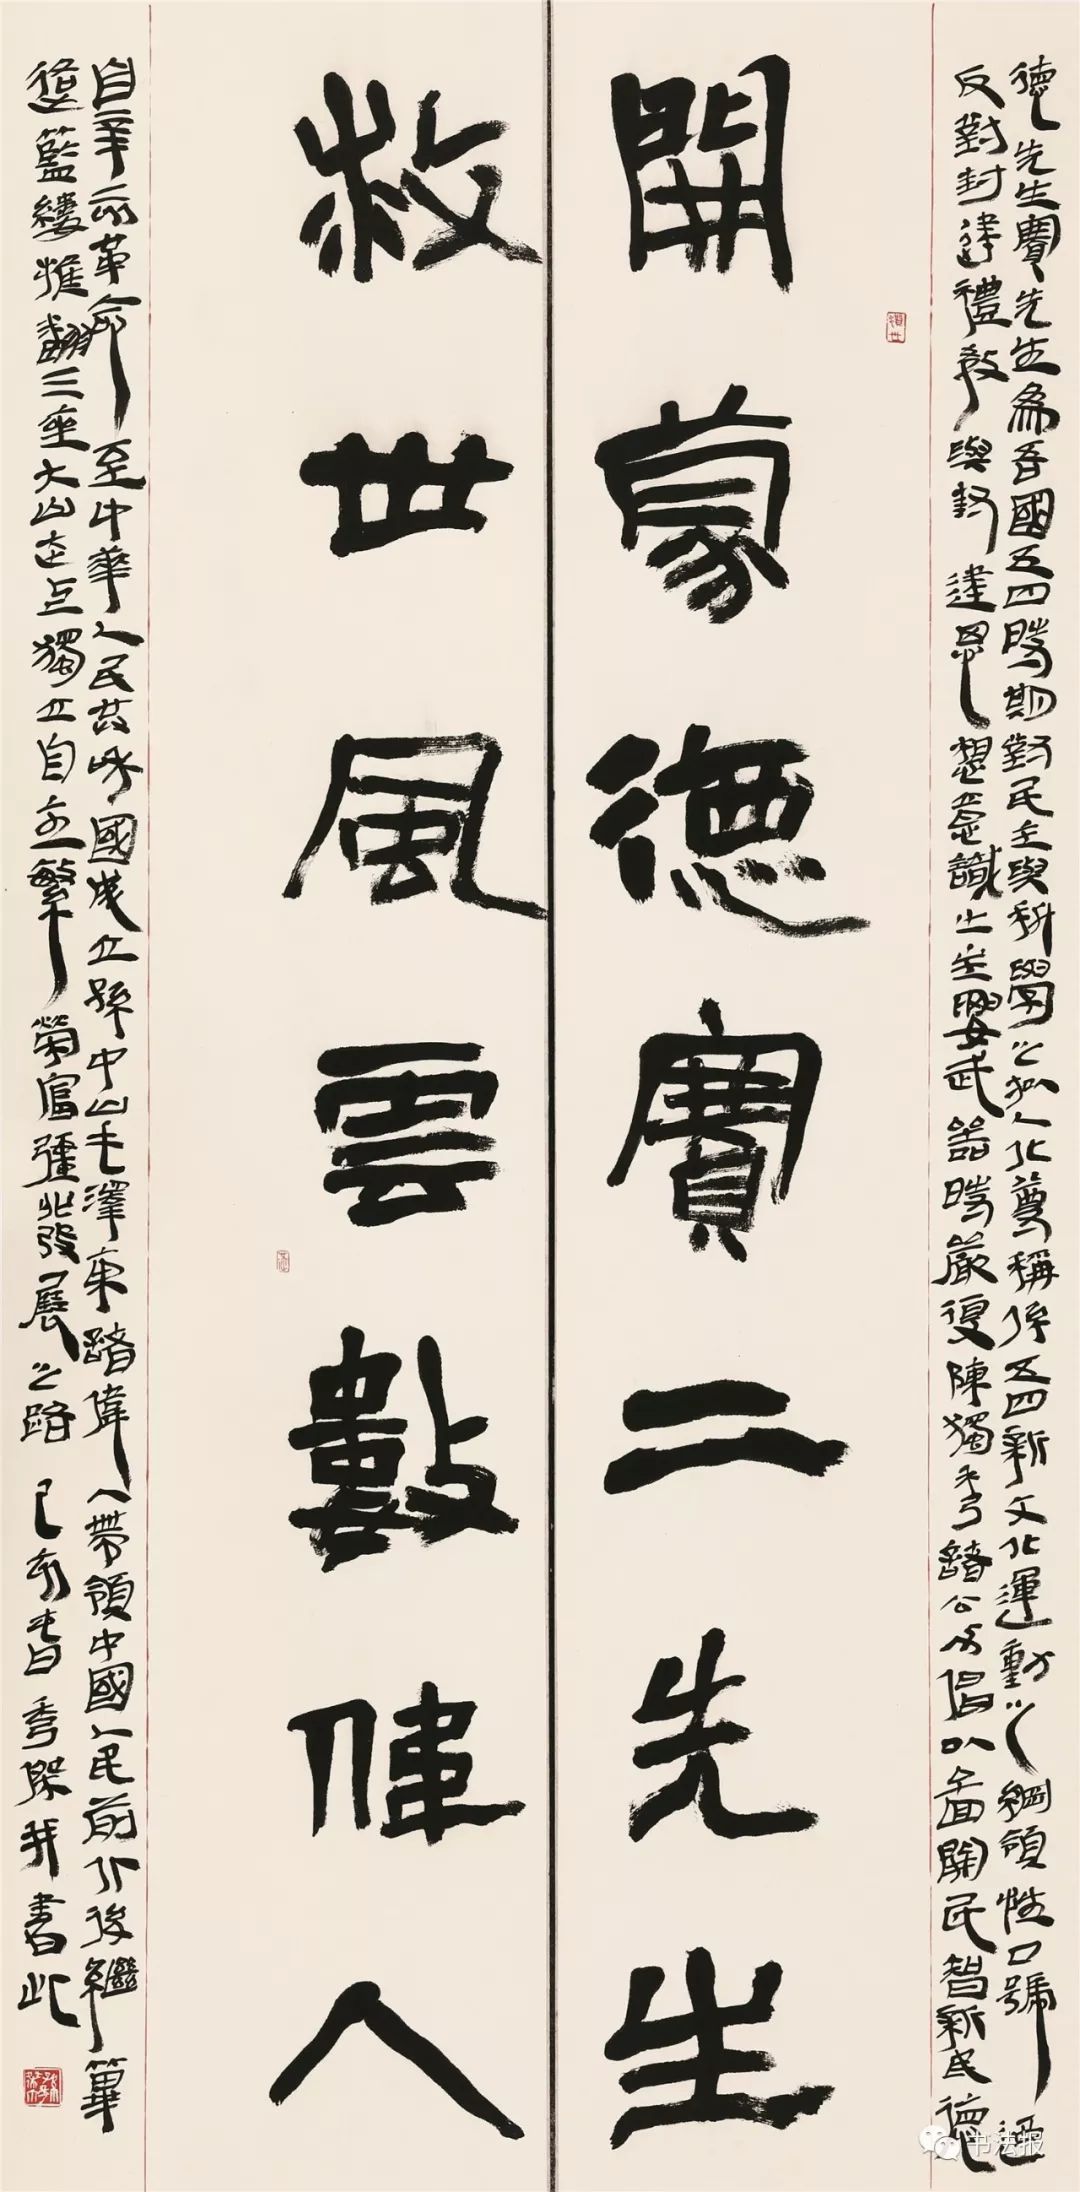 德先生賽先生為吾國五四時期對民主與科學之擬人化尊稱係五四新文化運動之綱領性口號迺
反對封建禮教與封建思想意識之主要武器時嚴復陳獨秀諸公力倡以啚開民智新民德
開蒙德賽二先生
救世風雲數偉人
自辛亥革命至中華人民共和國成立孫中山毛澤東諸偉人帶領中國人民前仆後繼篳
藍縷推翻三座大山走獨立自主繁榮富強化發展之路 己亥春書此
书法报